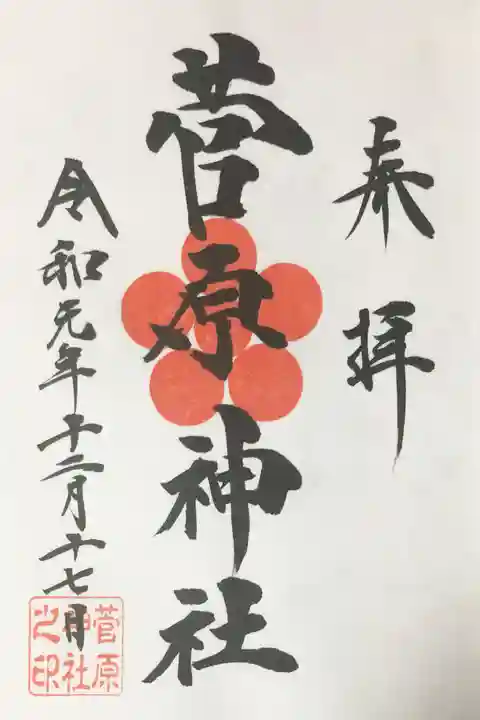 奉拝
菅原神社
令和元年十二月十七日
菅原
神社
之印